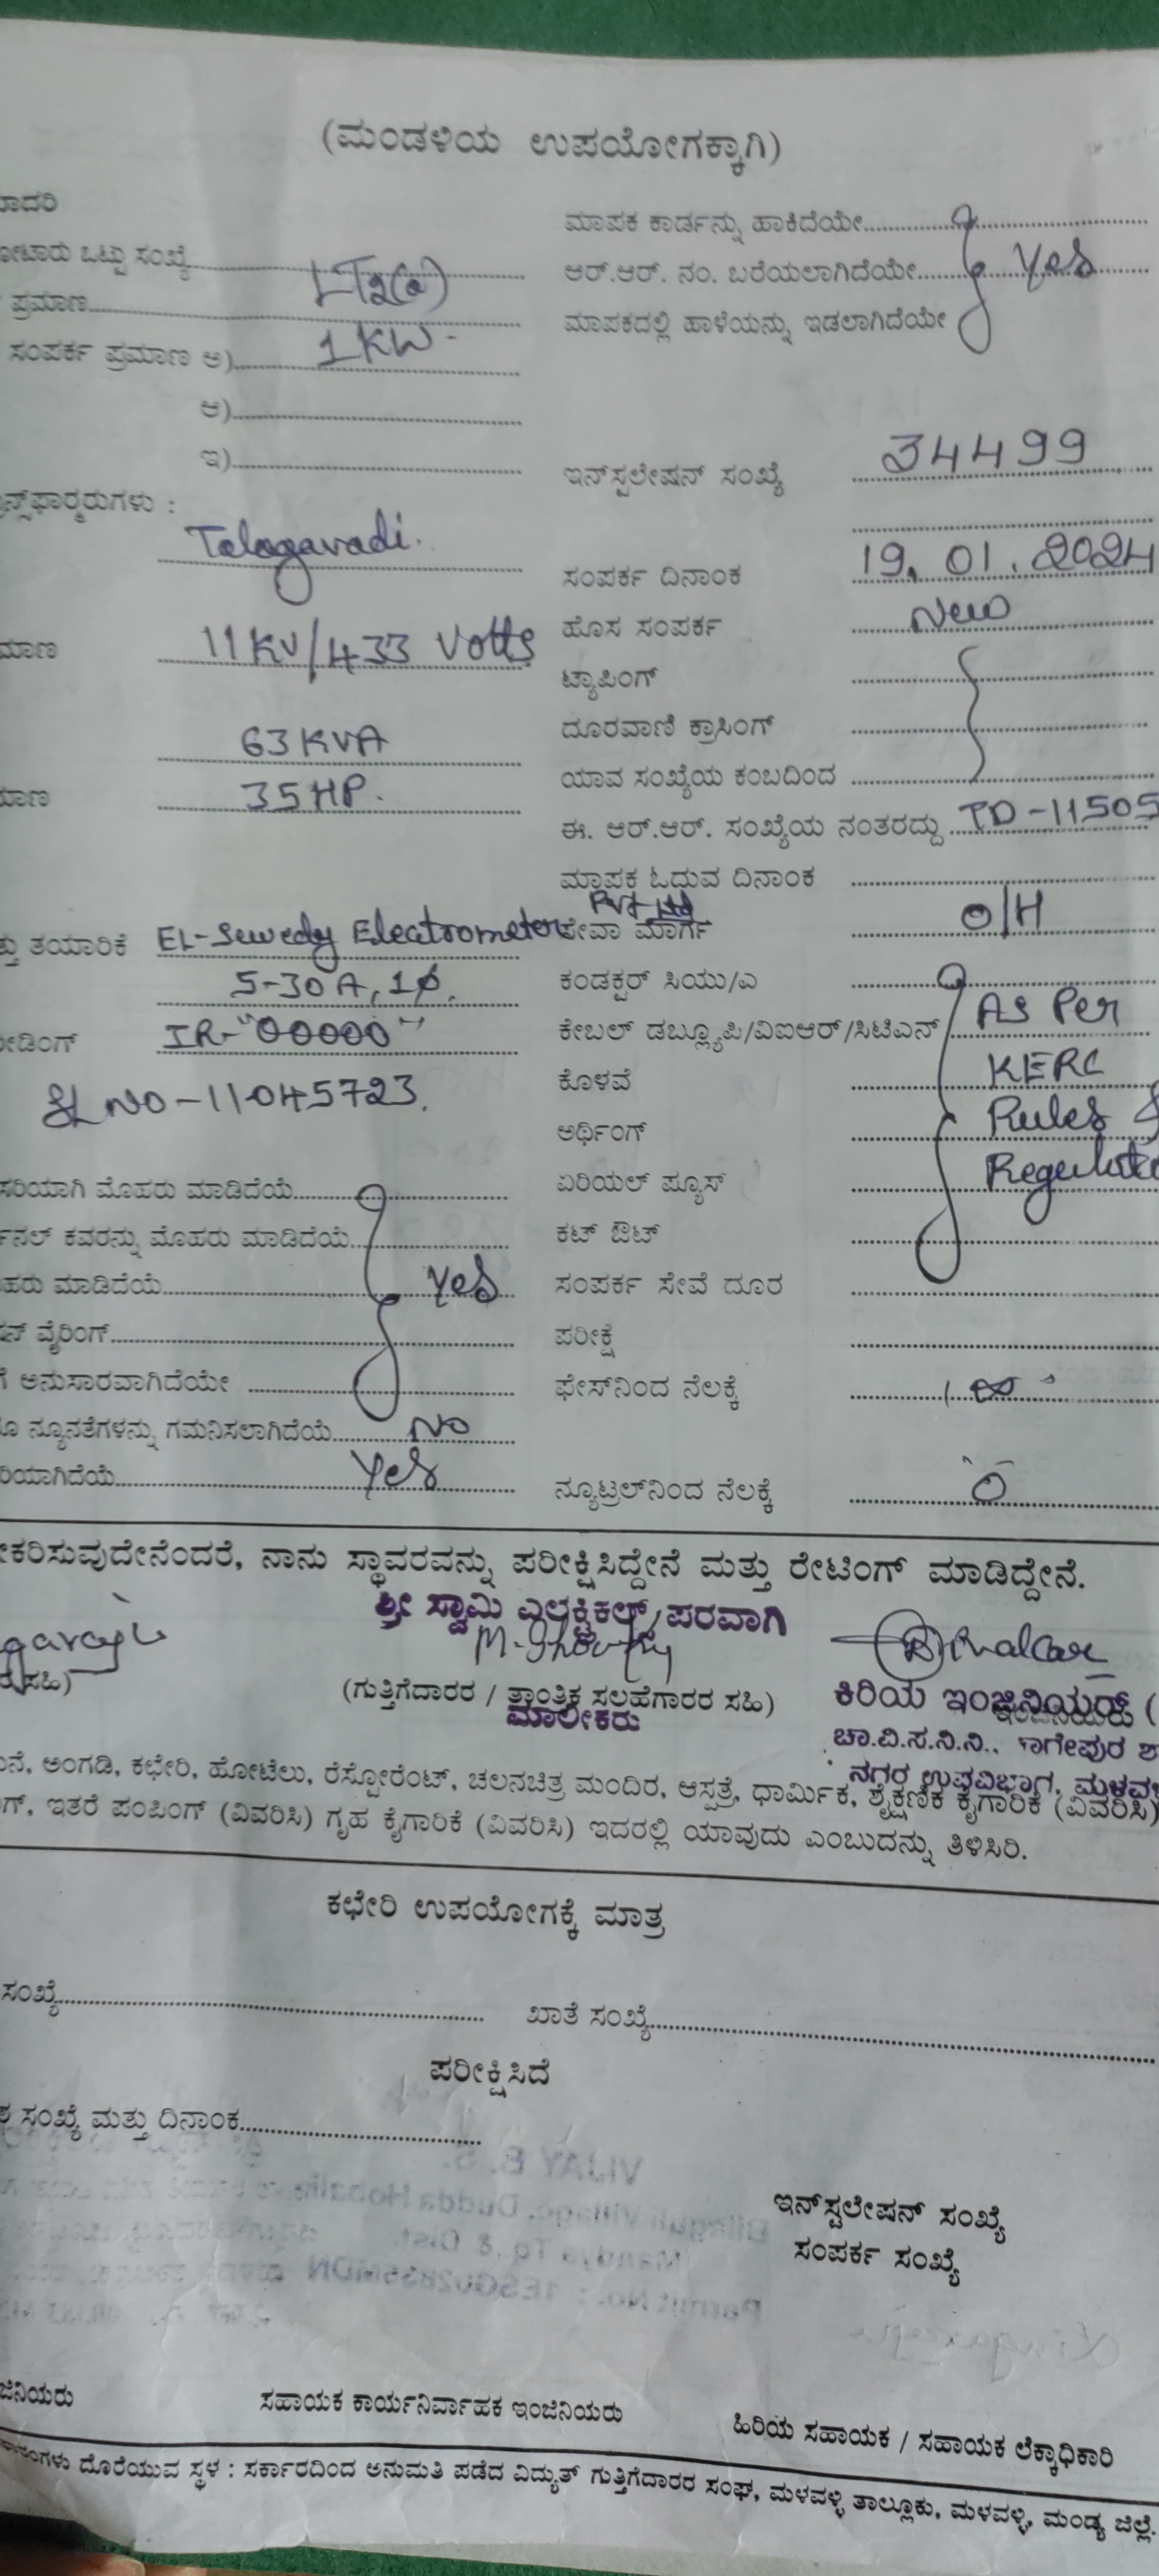 (ಮಂಡಳಿಯ ಉಪಯೋಗಕ್ಕಾಗಿ)
ಮಾಪಕ ಕಾರ್ಡನ್ನು ಹಾಕಿದೆಯೇ
ಒಟ್ಟು ಸಂಖ್ಯೆ LT2(a)
ಆರ್.ಆರ್. ನಂ. ಬರೆಯಲಾಗಿದೆಯೇ Yes
ಪ್ರಮಾಣ
ಮಾಪಕದಲ್ಲಿ ಹಾಳೆಯನ್ನು ಇಡಲಾಗಿದೆಯೇ
ಸಂಪರ್ಕ ಪ್ರಮಾಣ ಅ) 1KW
ಆ)
ಇ)
ಇನ್‌ಸ್ಟಲೇಷನ್ ಸಂಖ್ಯೆ 34499
Talagavadi.
ಸಂಪರ್ಕ ದಿನಾಂಕ 19.01.2024
11KV/433 Volts
ಹೊಸ ಸಂಪರ್ಕ New
ಟ್ಯಾಪಿಂಗ್
63KVA
ದೂರವಾಣಿ ಕ್ರಾಸಿಂಗ್
35HP.
ಯಾವ ಸಂಖ್ಯೆಯ ಕಂಬದಿಂದ
ಈ. ಆರ್.ಆರ್. ಸಂಖ್ಯೆಯ ನಂತರದ್ದು TD-11505
ಮಾಪಕ ಓದುವ ದಿನಾಂಕ
ತಯಾರಿಕೆ EL-Sewedy Electrometer Pvt Ltd
ಸೇವಾ ಮಾರ್ಗ O/H
5-30A, 1ϕ.
ಕಂಡಕ್ಟರ್ ಸಿಯು/ಎ
IR-"00000"
ಕೇಬಲ್ ಡಬ್ಲ್ಯೂಪಿ/ವಿಐಆರ್/ಸಿಟಿಎನ್ As Per
SL NO-11045723.
ಕೊಳವೆ KERC
ಅರ್ಥಿಂಗ್ Rules &
ಸರಿಯಾಗಿ ಮೊಹರು ಮಾಡಿದೆಯೆ
ಏರಿಯಲ್ ಪ್ಯೂಸ್
ಕವರನ್ನು ಮೊಹರು ಮಾಡಿದೆಯೆ
ಕಟ್ ಔಟ್
ಮಾಡಿದೆಯೆ Yes
ಸಂಪರ್ಕ ಸೇವೆ ದೂರ
ವೈರಿಂಗ್
ಪರೀಕ್ಷೆ
ಅನುಸಾರವಾಗಿದೆಯೇ
ಫೇಸ್‌ನಿಂದ ನೆಲಕ್ಕೆ ∞
ನ್ಯೂನತೆಗಳನ್ನು ಗಮನಿಸಲಾಗಿದೆಯೆ No
Yes
ನ್ಯೂಟ್ರಲ್‌ನಿಂದ ನೆಲಕ್ಕೆ 0
ನಾನು ಸ್ಥಾವರವನ್ನು ಪರೀಕ್ಷಿಸಿದ್ದೇನೆ ಮತ್ತು ರೇಟಿಂಗ್ ಮಾಡಿದ್ದೇನೆ.
ಶ್ರೀ ಸ್ವಾಮಿ ಎಲೆಕ್ಟ್ರಿಕಲ್ಸ್ ಪರವಾಗಿ
(ಗುತ್ತಿಗೆದಾರರ / ತಾಂತ್ರಿಕ ಸಲಹೆಗಾರರ ಸಹಿ)
ಮಾಲೀಕರು
ಕಿರಿಯ ಇಂಜಿನಿಯರ್ (
ಚಾ.ವಿ.ಸ.ನಿ.ನಿ.,
ನಗರ ಉಪವಿಭಾಗ,
ಅಂಗಡಿ, ಕಛೇರಿ, ಹೋಟೆಲು, ರೆಸ್ಟೋರೆಂಟ್, ಚಲನಚಿತ್ರ ಮಂದಿರ, ಆಸ್ಪತ್ರೆ, ಧಾರ್ಮಿಕ, ಶೈಕ್ಷಣಿಕ ಕೈಗಾರಿಕೆ (ವಿವರಿಸಿ)
ಇತರೆ ಪಂಪಿಂಗ್ (ವಿವರಿಸಿ) ಗೃಹ ಕೈಗಾರಿಕೆ (ವಿವರಿಸಿ) ಇದರಲ್ಲಿ ಯಾವುದು ಎಂಬುದನ್ನು ತಿಳಿಸಿರಿ.
ಕಛೇರಿ ಉಪಯೋಗಕ್ಕೆ ಮಾತ್ರ
ಸಂಖ್ಯೆ
ಖಾತೆ ಸಂಖ್ಯೆ
ಪರೀಕ್ಷಿಸಿದೆ
ಸಂಖ್ಯೆ ಮತ್ತು ದಿನಾಂಕ
ಇನ್‌ಸ್ಟಲೇಷನ್ ಸಂಖ್ಯೆ
ಸಂಪರ್ಕ ಸಂಖ್ಯೆ
ಸಹಾಯಕ ಕಾರ್ಯನಿರ್ವಾಹಕ ಇಂಜಿನಿಯರು
ಹಿರಿಯ ಸಹಾಯಕ / ಸಹಾಯಕ ಲೆಕ್ಕಾಧಿಕಾರಿ
ದೊರೆಯುವ ಸ್ಥಳ : ಸರ್ಕಾರದಿಂದ ಅನುಮತಿ ಪಡೆದ ವಿದ್ಯುತ್ ಗುತ್ತಿಗೆದಾರರ ಸಂಘ, ಮಳವಳ್ಳಿ ತಾಲ್ಲೂಕು, ಮಳವಳ್ಳಿ, ಮಂಡ್ಯ ಜಿಲ್ಲೆ.